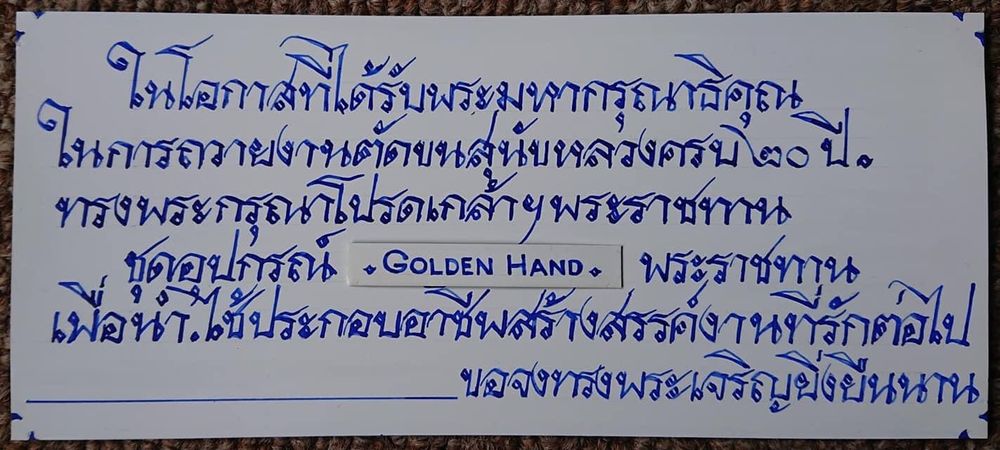 ในโอกาสที่ได้รับพระมหากรุณาธิคุณ
ในการถวายงานตัดขนสุนัขหลวงครบ ๒๐ ปี.
ทรงพระกรุณาโปรดเกล้าฯ พระราชทาน
ชุดอุปกรณ์ . GOLDEN HAND . พระราชทาน
เพื่อนำ.ใช้ประกอบอาชีพสร้างสรรค์งานที่รักต่อไป
ขอจงทรงพระเจริญยิ่งยืนนาน